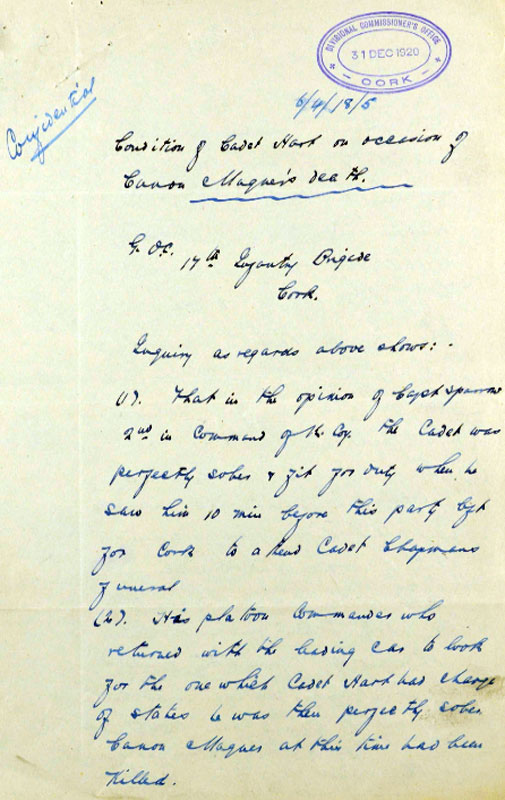 DIVISIONAL COMMISSIONER'S OFFICE
31 DEC 1920
CORK
6/4/18/5
Confidential
Condition of Cadet Hart on occasion of
Canon Magner's death.
G.O.C. 17th Infantry Brigade
Cork.
Enquiry as regards above shows:-
(1). That in the opinion of Capt Sparrow
2nd in Command of K. Coy. the Cadet was
perfectly sober & fit for duty when he
saw him 10 min before this party left
for Cork to attend Cadet Chapmans
funeral
(2). His platoon Commander who
returned with the leading car to look
for the one which Cadet Hart had charge
of states he was then perfectly sober
Canon Magner at this time had been
Killed.